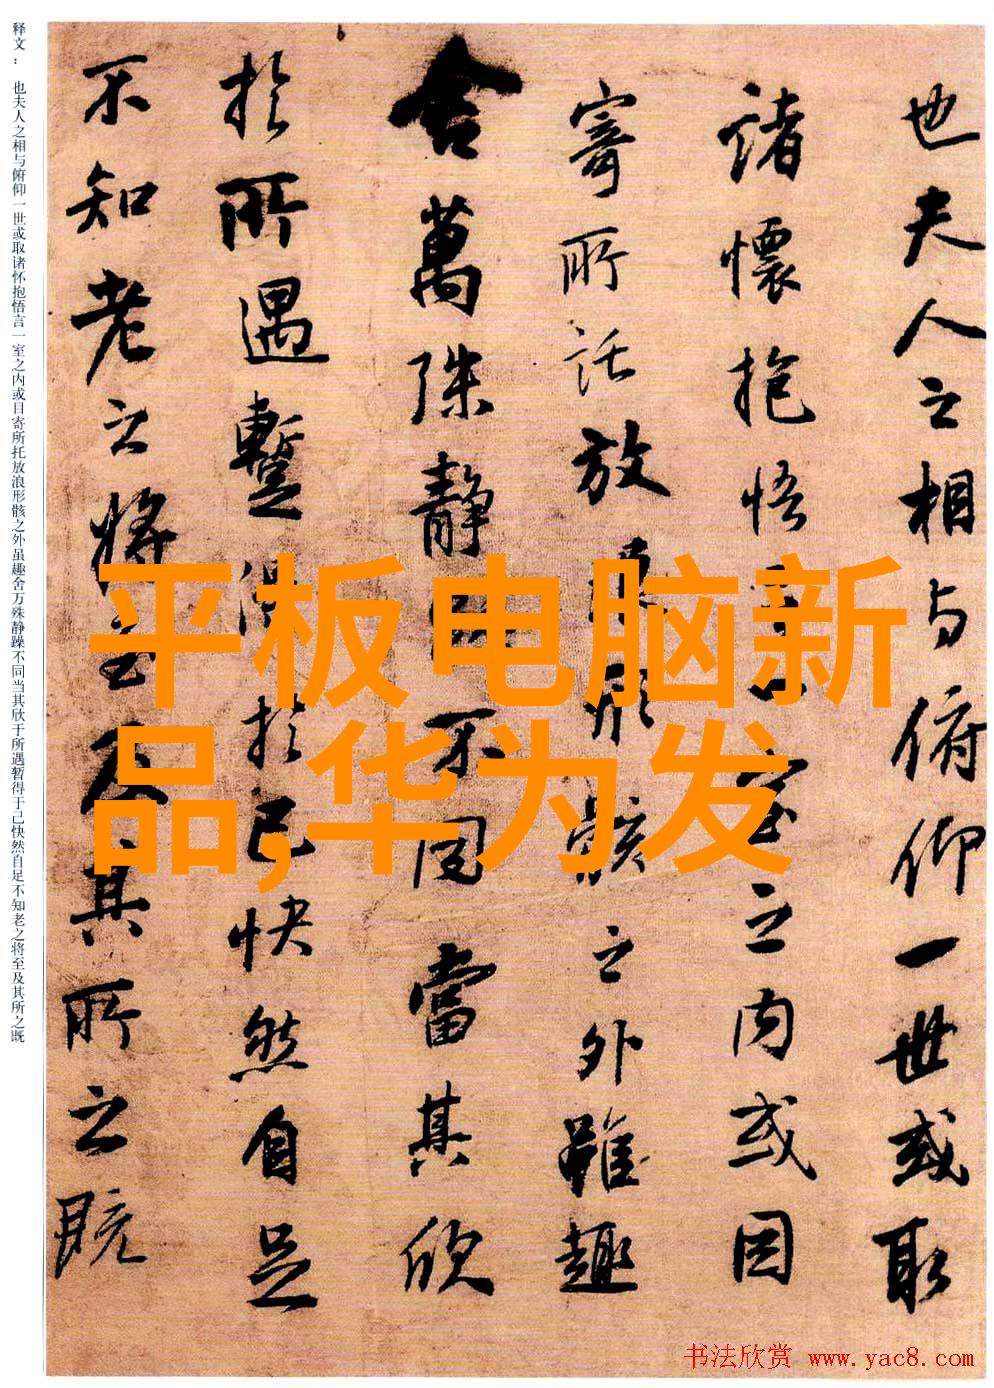 释文： 也夫人之相与俯仰一世或取诸怀抱悟言一室之内或目寄所托放浪形骸之外虽趣舍万殊静躁不同当其欣于所遇暂得于己快然自足不知老之将至及其所之既
也夫人之相与俯仰一世或取
諸懷抱悟室之内或因
寄所託放形骸之外雖趣
舍萬殊静不同當其欣
於所遇蹔得於己快然自足
不知老之將至及其所之既
平板电脑新
品,华为发
书法欣赏 www.yac8.com